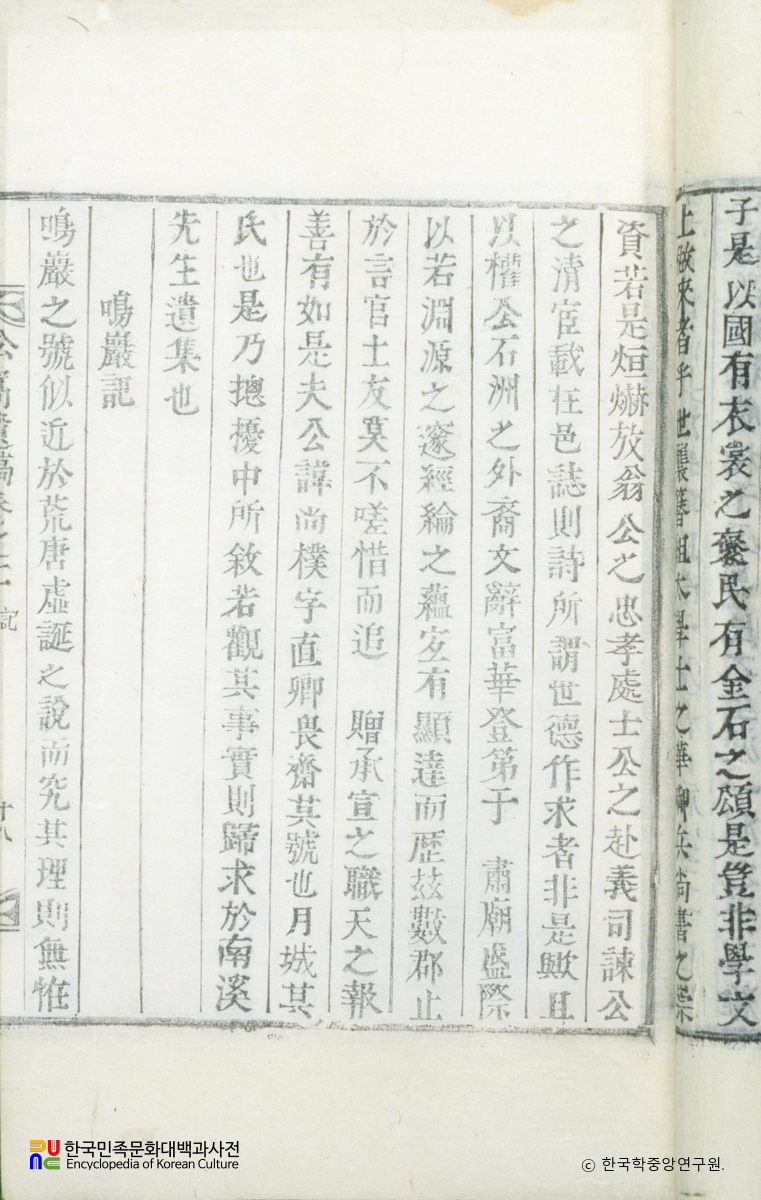 子是以國有衣裳之褒民有金石之頌是豈非學文
上啟來者乎世襲簪組太學士之華卿兵尙書之崇
資若是烜爀放翁公之忠孝處士公之赴義司諫公
之清宦載在邑誌則詩所謂世德作求者非是歟且
以權公石洲之外裔文辭富華登第于 肅廟盛際
以若淵源之邃經綸之蘊宜有顯達而歷玆數郡止
於言官士友莫不嗟惜而追 贈承宣之職天之報
善有如是夫公諱尙樸字直卿畏齋其號也月城其
氏也是乃摠擾中所敘若觀其事實則歸求於南溪
先生遺集也
鳴巖記
鳴巖之號似近於荒唐虛誕之說而究其理則無惟
遺稿卷之二 記 十八
한국민족문화대백과사전
Encyclopedia of Korean Culture
© 한국학중앙연구원.